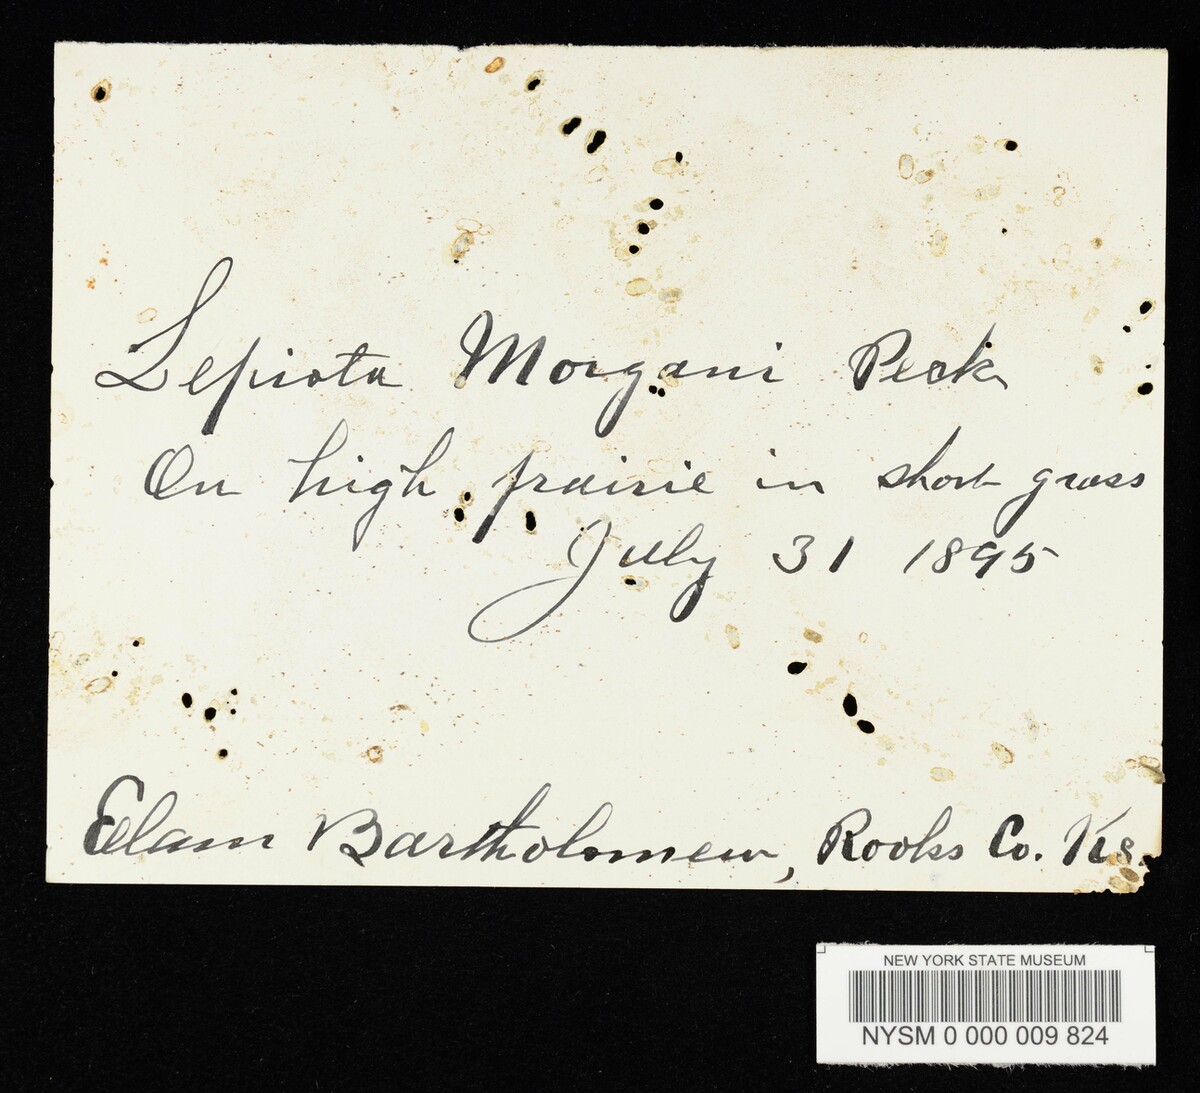 Lepiota Morgani Peck
On high prairie in short grass
July 31 1895
Elam Bartholomew, Rooks Co. Ks.
NEW YORK STATE MUSEUM
NYSM 0 000 009 824